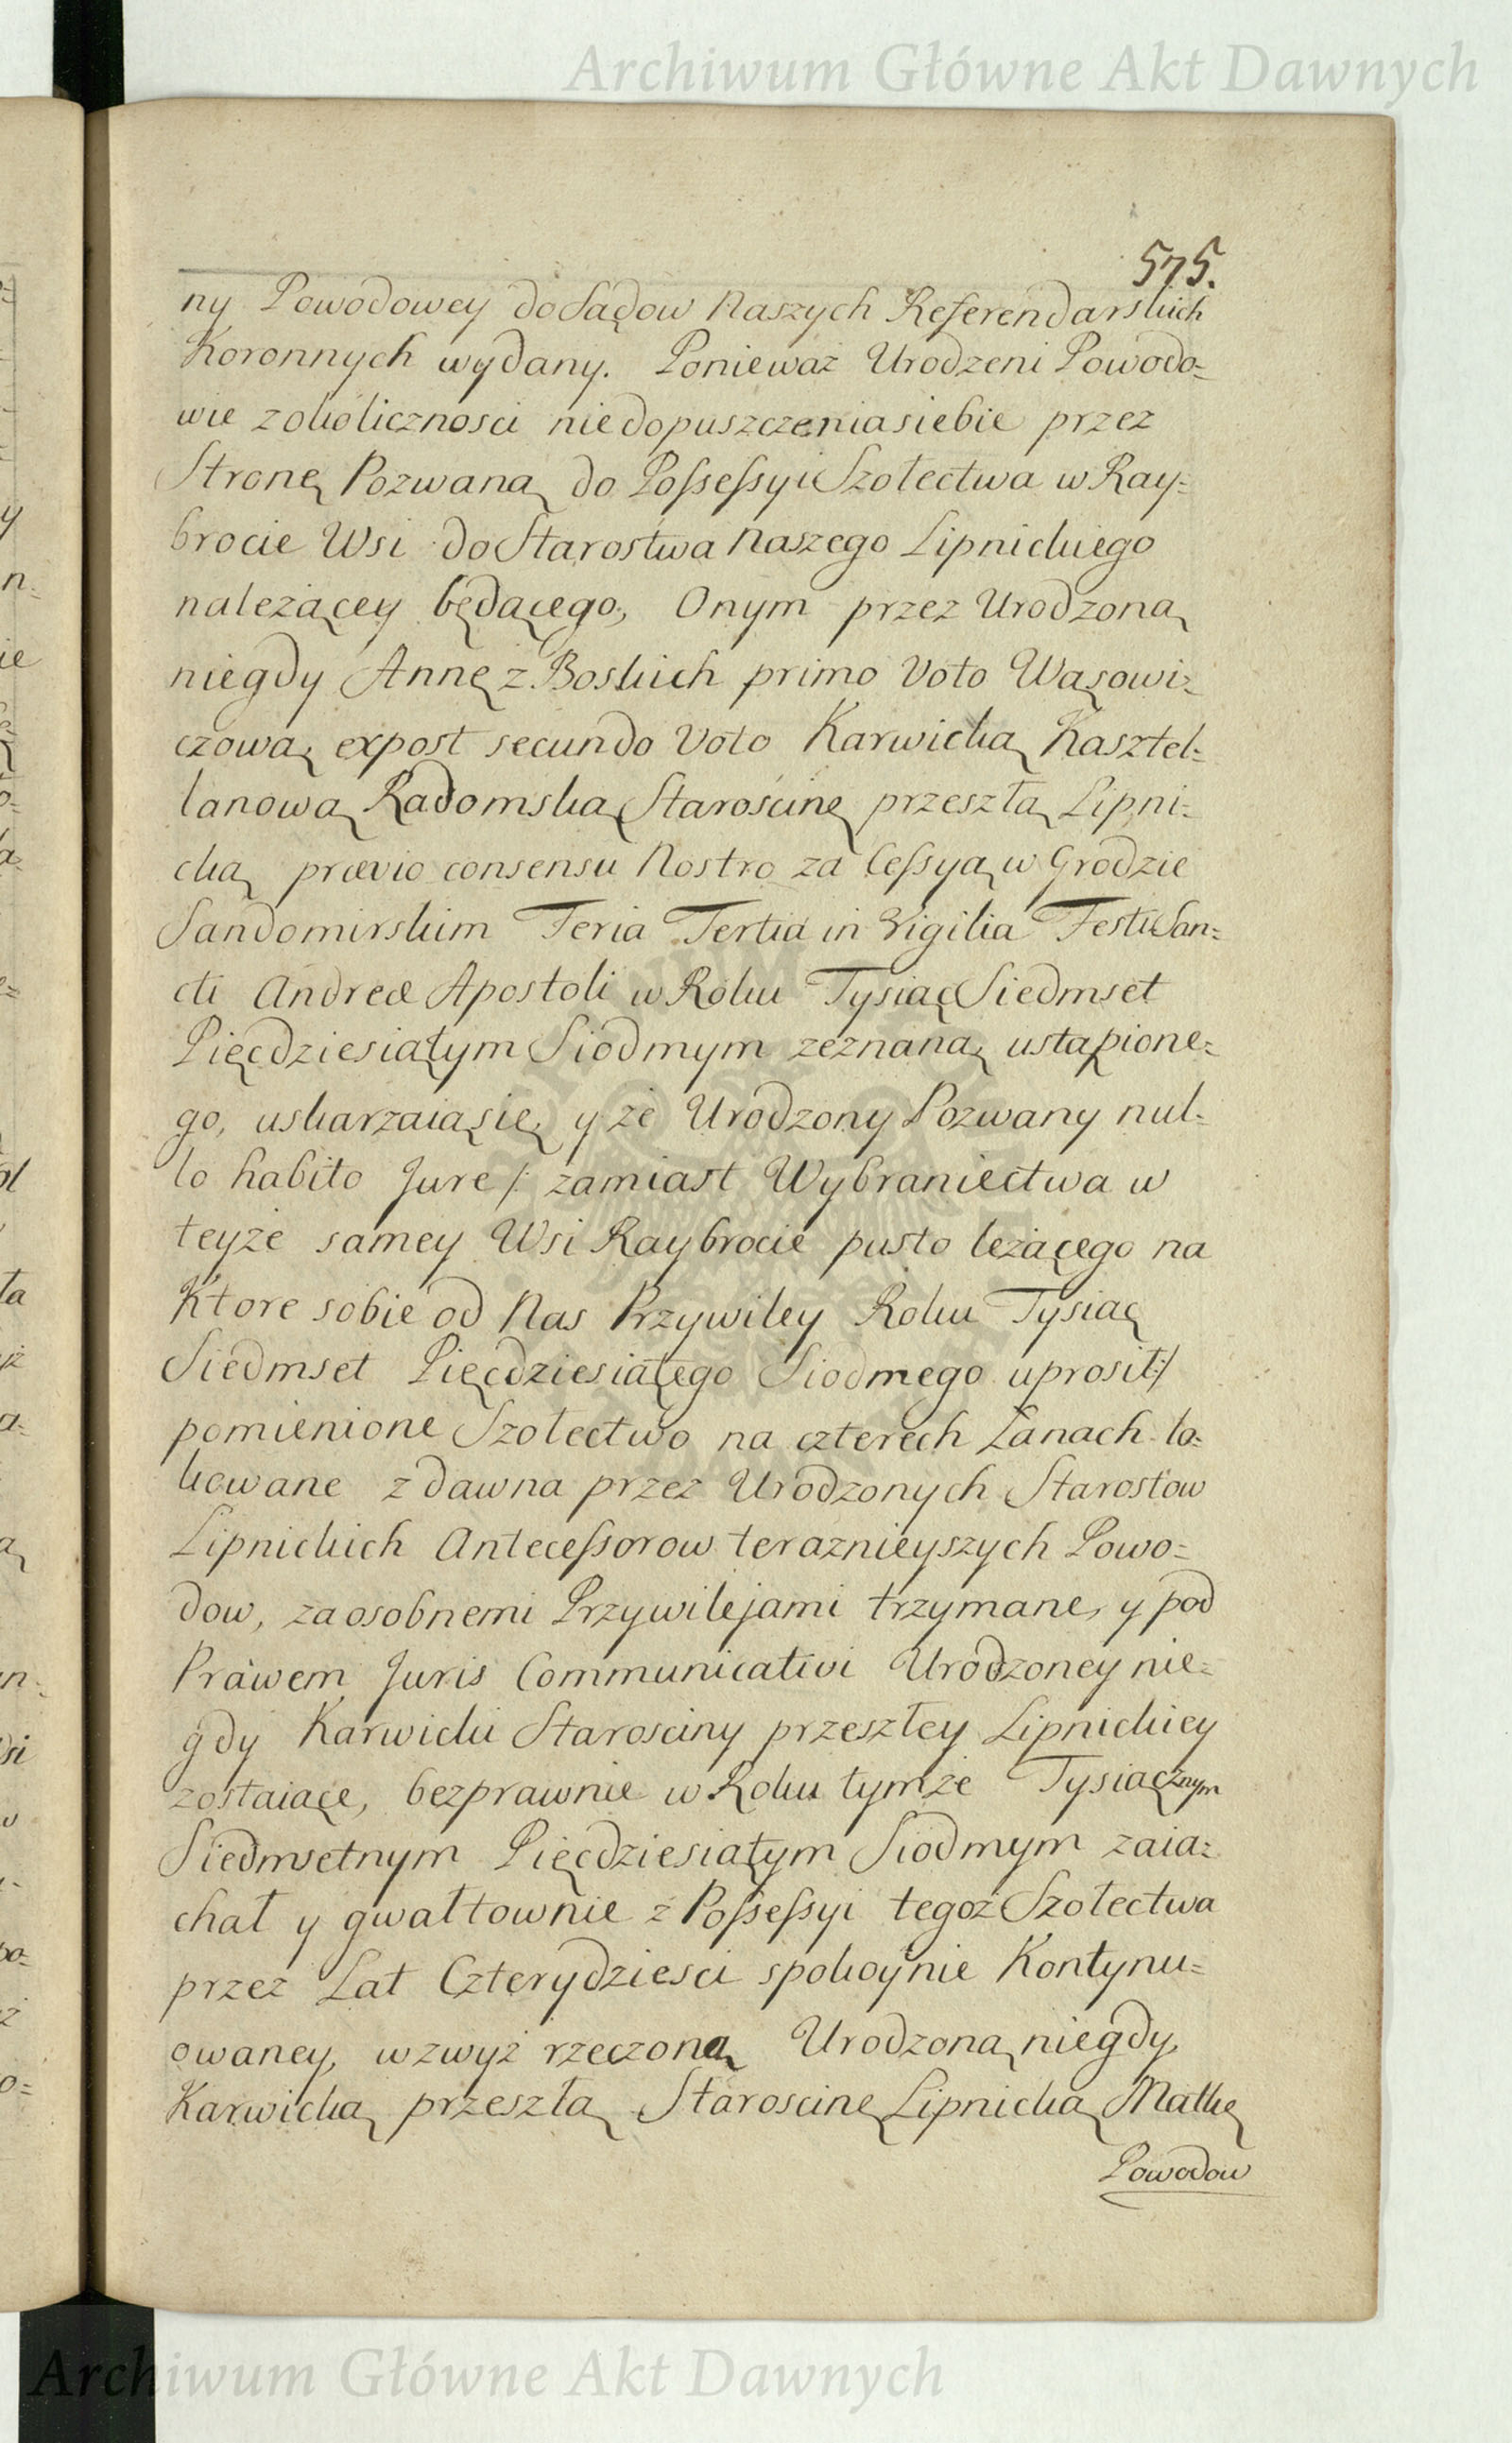 Archiwum Główne Akt Dawnych
575.
ny Powodowey do Sądow Naszych Referendarskich
Koronnych wydany. Ponieważ Urodzeni Powodo=
wie z okolicznosci niedopuszczenia siebie przez
Stronę Pozwaną do Possessyi Szołectwa w Ray=
brocie Wsi do Starostwa Naszego Lipnickiego
należącey będącego, Onym przez Urodzoną
niegdy Annę z Boskich primo Voto Wąsowi=
czową, expost secundo Voto Karwicką Kasztel=
lanową Radomską Starościnę przeszłą Lipni=
cką prævio consensu Nostro za Cessyą w Grodzie
Sandomirskim Feria Tertia in Vigilia Festi San=
cti Andreæ Apostoli w Roku Tysiąc Siedmset
Pięcdziesiątym Siodmym zeznaną ustąpione=
go, uskarzaią się, y że Urodzony Pozwany nul=
lo habito Jure /: zamiast Wybraniectwa w
teyże samey Wsi Raybrocie pusto leżącego na
Ktore sobie od Nas Przywiley Roku Tysiąc
Siedmset Pięcdziesiątego Siodmego uprosił:/
pomienione Szołectwo na czterech Łanach lo=
kowane z dawna przez Urodzonych Starostow
Lipnickich Antecessorow teraznieyszych Powo=
dow, za osobnemi Przywilejami trzymane, y pod
Prawem Juris Communicativi Urodzoney nie=
gdy Karwicki Starosciny przeszłey Lipnickiey
zostaiące, bezprawnie w Roku tymże Tysiącznym
Siedmsetnym Pięcdziesiątym Siodmym zaia=
chał y gwałtownie z Possessyi tegoż Szołectwa
przez Lat Czterydziesci spokoynie Kontynu=
owaney, wzwyż rzeczoną Urodzoną niegdy
Karwicką przeszłą Staroscinę Lipnicką Matkę
Powodow
Archiwum Główne Akt Dawnych